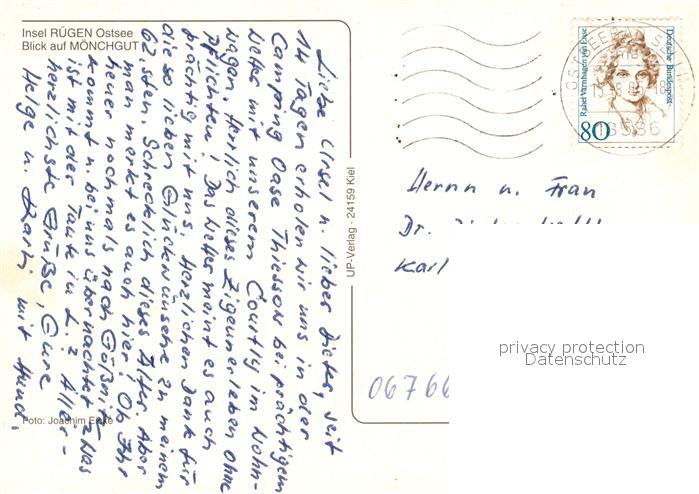 Insel RÜGEN Ostsee
Blick auf MÖNCHGUT
Liebe Ursel u. lieber Dieter, seit
14 Tagen erholen wir uns in der
Camping Oase Thiessow bei prächtigem
Wetter mit unserem Courtly im Wohn-
wagen. Herrlich dieses Zigeunerleben ohne
Pflichten! Das Wetter meint es auch
prächtig mit uns. Herzlichen Dank für
diese lieben Glückwünsche zu meinem
62.sten. Schrecklich dieses Alter. Aber
man merkt es auch hier! Ob Ihr
heuer nochmals nach Gößnitz
kommt u. bei uns übernachtet? Was
ist mit der Taute in L.? Aller-
herzlichste Grüße, Eure
Helge u. Karli mit Hund.
Foto: Joachim
UP-Verlag · 24159 Kiel
Deutsche Bundespost
Rahel Varnhagen von Ense
80
OSTSEEBAD SELLIN
18586
Herrn u. Frau
Dr.
Karl
06766
privacy protection
Datenschutz